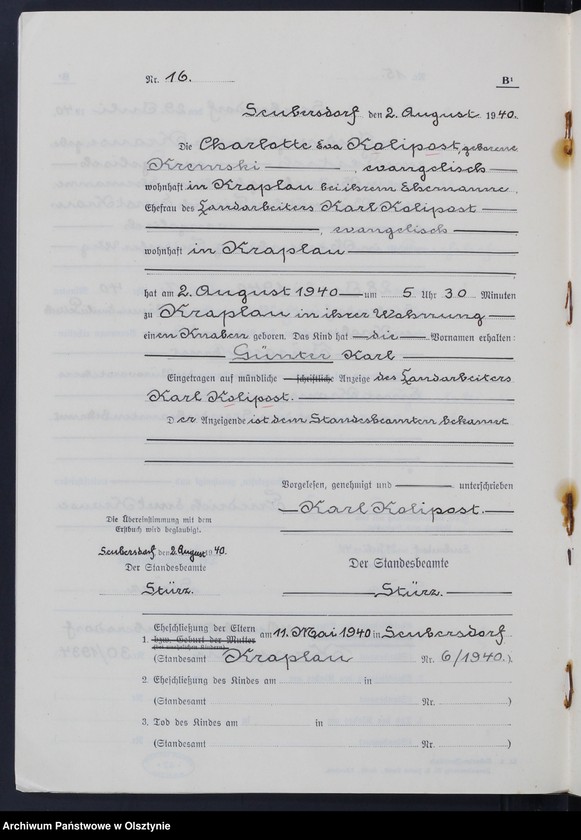 Nr. 16.
B¹
Seubersdorf den 2. August 1940.
Die Charlotte Eva Kolipost, geborene
Kremski, evangelisch
wohnhaft in Kraplau bei ihrem Ehemanne,
Ehefrau des Landarbeiters Karl Kolipost
, evangelisch
wohnhaft in Kraplau
hat am 2. August 1940 um 5 Uhr 30 Minuten
zu Kraplau in ihrer Wohnung
einen Knaben geboren. Das Kind hat die Vornamen erhalten:
Günter Karl
Eingetragen auf mündliche schriftliche Anzeige des Landarbeiters
Karl Kolipost.
Der Anzeigende ist dem Standesbeamten bekannt
Vorgelesen, genehmigt und unterschrieben
Karl Kolipost.
Die Übereinstimmung mit dem
Erstbuch wird beglaubigt.
Seubersdorf den 2. August 1940.
Der Standesbeamte
Stürz.
Der Standesbeamte
Stürz.
1. Eheschließung der Eltern
bzw. Geburt der Mutter
am 11. Mai 1940 in Seubersdorf
(Standesamt Kraplau Nr. 6/1940.)
2. Eheschließung des Kindes am in
(Standesamt Nr. )
3. Tod des Kindes am in
(Standesamt Nr. )
Archiwum Państwowe w Olsztynie